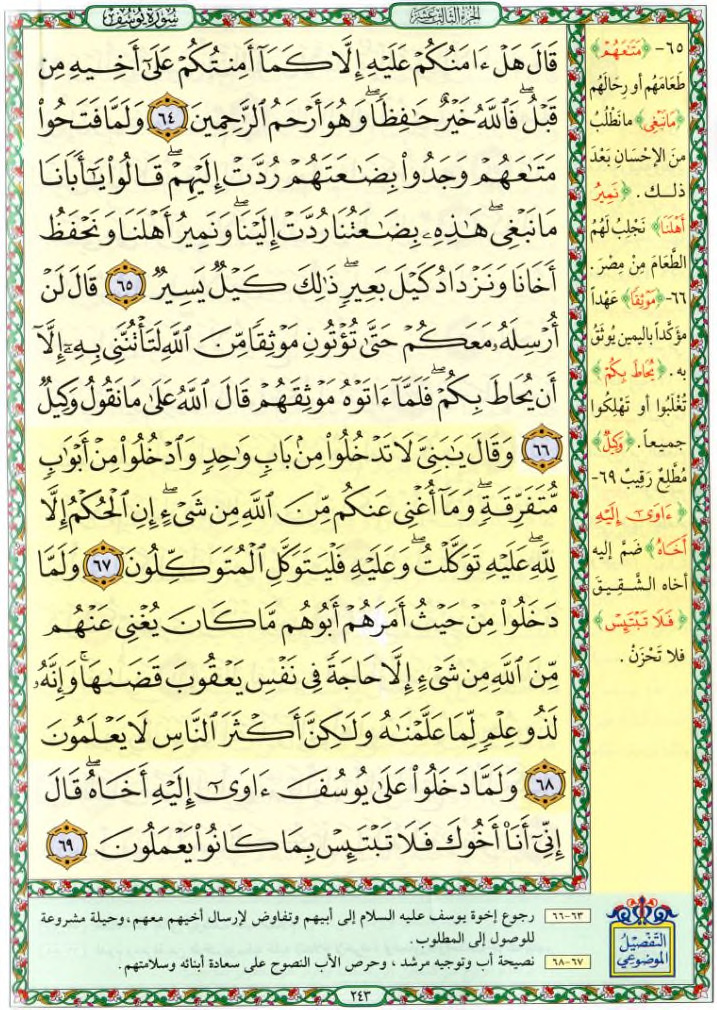 سُورَةُ يُوسُفَ
الجزء الثالث عشر
قَالَ هَلْ ءَامَنُكُمْ عَلَيْهِ إِلَّا كَمَآ أَمِنتُكُمْ عَلَىٰٓ أَخِيهِ مِن
قَبْلُ ۖ فَٱللَّهُ خَيْرٌ حَـٰفِظًا ۖ وَهُوَ أَرْحَمُ ٱلرَّٰحِمِينَ ٦٤ وَلَمَّا فَتَحُوا۟
مَتَـٰعَهُمْ وَجَدُوا۟ بِضَـٰعَتَهُمْ رُدَّتْ إِلَيْهِمْ ۖ قَالُوا۟ يَـٰٓأَبَانَا
مَا نَبْغِى ۖ هَـٰذِهِۦ بِضَـٰعَتُنَا رُدَّتْ إِلَيْنَا ۖ وَنَمِيرُ أَهْلَنَا وَنَحْفَظُ
أَخَانَا وَنَزْدَادُ كَيْلَ بَعِيرٍ ۖ ذَٰلِكَ كَيْلٌ يَسِيرٌ ٦٥ قَالَ لَنْ
أُرْسِلَهُۥ مَعَكُمْ حَتَّىٰ تُؤْتُونِ مَوْثِقًا مِّنَ ٱللَّهِ لَتَأْتُنَّنِى بِهِۦٓ إِلَّآ
أَن يُحَاطَ بِكُمْ ۖ فَلَمَّآ ءَاتَوْهُ مَوْثِقَهُمْ قَالَ ٱللَّهُ عَلَىٰ مَا نَقُولُ وَكِيلٌ
٦٦ وَقَالَ يَـٰبَنِىَّ لَا تَدْخُلُوا۟ مِنۢ بَابٍ وَٰحِدٍ وَٱدْخُلُوا۟ مِنْ أَبْوَٰبٍ
مُّتَفَرِّقَةٍ ۖ وَمَآ أُغْنِى عَنكُم مِّنَ ٱللَّهِ مِن شَىْءٍ ۖ إِنِ ٱلْحُكْمُ إِلَّا
لِلَّهِ ۖ عَلَيْهِ تَوَكَّلْتُ ۖ وَعَلَيْهِ فَلْيَتَوَكَّلِ ٱلْمُتَوَكِّلُونَ ٦٧ وَلَمَّا
دَخَلُوا۟ مِنْ حَيْثُ أَمَرَهُمْ أَبُوهُم مَّا كَانَ يُغْنِى عَنْهُم
مِّنَ ٱللَّهِ مِن شَىْءٍ إِلَّا حَاجَةً فِى نَفْسِ يَعْقُوبَ قَضَىٰهَا ۚ وَإِنَّهُۥ
لَذُو عِلْمٍ لِّمَا عَلَّمْنَـٰهُ وَلَـٰكِنَّ أَكْثَرَ ٱلنَّاسِ لَا يَعْلَمُونَ
٦٨ وَلَمَّا دَخَلُوا۟ عَلَىٰ يُوسُفَ ءَاوَىٰٓ إِلَيْهِ أَخَاهُ ۖ قَالَ
إِنِّىٓ أَنَا۠ أَخُوكَ فَلَا تَبْتَئِسْ بِمَا كَانُوا۟ يَعْمَلُونَ ٦٩
٦٥- ﴿مَتَـٰعَهُمْ﴾
طَعَامَهُم أو رِحَالَهُم
﴿مَانَبْغِى﴾ مانَطْلُبُ
منَ الإحْسَانِ بَعْدَ
ذلـك . ﴿نَمِيرُ
أَهْلَنَا﴾ نَجْلِبُ لَهُم
الطَّعَامَ مِنْ مِصْرَ .
٦٦- ﴿مَوْثِقًا﴾ عَهْداً
مؤكَّداً باليمينِ يُوثَقُ
به . ﴿يُحَاطَ بِكُمْ﴾
تُغْلَبُوا أو تَهْلِكُوا
جميعاً . ﴿وَكِيلٌ﴾
مُطَّلِعٌ رَقِيبٌ ٦٩-
﴿ءَاوَىٰٓ إِلَيْهِ
أَخَاهُ﴾ ضَمَّ إليه
أخاه الـشَّـقِـيـقَ
﴿فَلَا تَبْتَئِسْ﴾
فلا تَحْزَنْ .
التَّفْصِيلُ
المَوْضُوعِيّ
٦٣-٦٦ رجوع إخوة يوسف عليه السلام إلى أبيهم وتفاوض لإرسال أخيهم معهم، وحيلة مشروعة
للوصول إلى المطلوب .
٦٧-٦٨ نصيحة أب وتوجيه مرشد ، وحرص الأب النصوح على سعادة أبنائه وسلامتهم .
٢٤٣